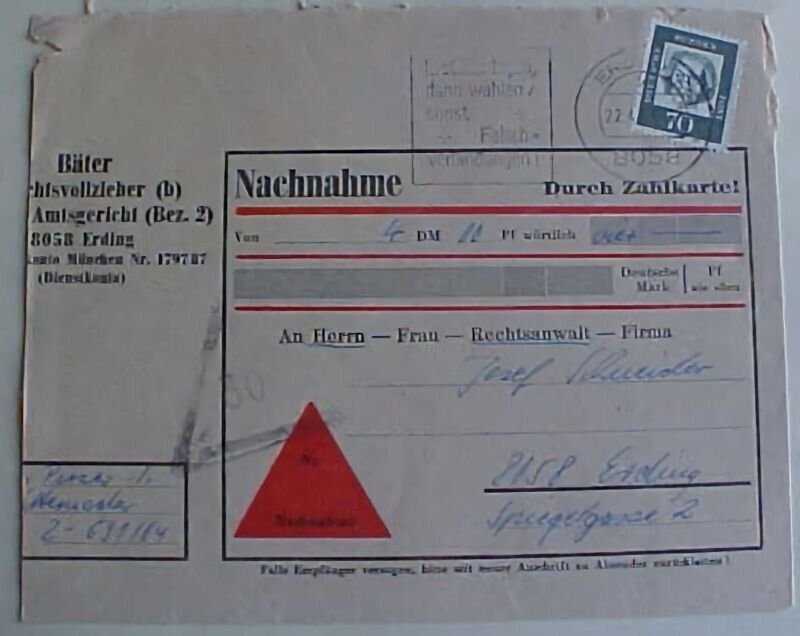 dann wählen
sonst
Falsch=
verbindungen!
22.
8058
70
Bäter
htsvollzieher (b)
Amtsgericht (Bez. 2)
8058 Erding
konto München Nr. 179787
(Dienstkonto)
Nachnahme
Durch Zahlkarte!
Von 4 DM 11 Pf wörtlich vier
Deutsche Mark
Pf wie oben
An Herrn — Frau — Rechtsanwalt — Firma
Josef Schneider
8058 Erding
Spiegelgasse 2
Nr.
Nachnahme
Falls Empfänger verzogen, bitte mit neuer Anschrift an Absender zurückleiten!